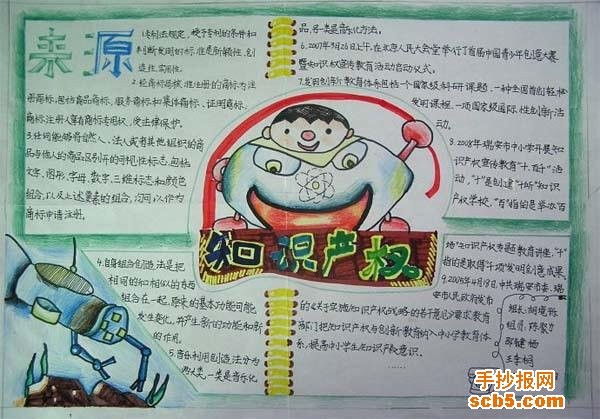 来源
1.专利法规定,授予专利的条件和
判断发明的标准是新颖性,创
造性,实用性.
2.经商标局核准注册的商标为注
册商标,包括商品商标、服务商标和集体商标、证明商标,
商标注册人享有商标专用权,受法律保护.
3.任何能够将自然人、法人或者其他组织的商
品与他人的商品区别开的可视性标志,包括
文字、图形、字母、数字、三维标志和颜色
组合,以及上述要素的组合,均可以作为
商标申请注册.
4.自身组合创造法是把
相同的和相似的东西
组合在一起,原来的基本功能可能
发生变化,并产生新的功能和新
的作用.
5.音乐利用创造法分为
两大类,一类是音乐化
知识产权
品,另一类是音乐化方法.
6.2007年3月26日上午,在北京人民大会堂举行了首届中国青少年创造大赛
暨知识产权宣传教育活动启动仪式.
7.发明创新教育体系包括一个国家级科研课题,一种全国首创轻松
发明课程,一项国家级国际性创新活
动.
8.2008年瑞安市中小学开展知
识产权宣传教育"十.百.千"活
动,"十"是创建十所"知识
产权学校,"百"指的是举办百
场"知识产权专题教育讲座,"千"
指的是取得千项发明创意成果.
9.2006年4月18日,中共瑞安市委、瑞
安市人民政府发布
的《关于实施知识产权战略的若干意见》要求教育
部门把知识产权与创新教育纳入中小学教育体
系,提高中小学生知识产权意识.
......
组长:
组员:陈
手抄报网
scb5.com